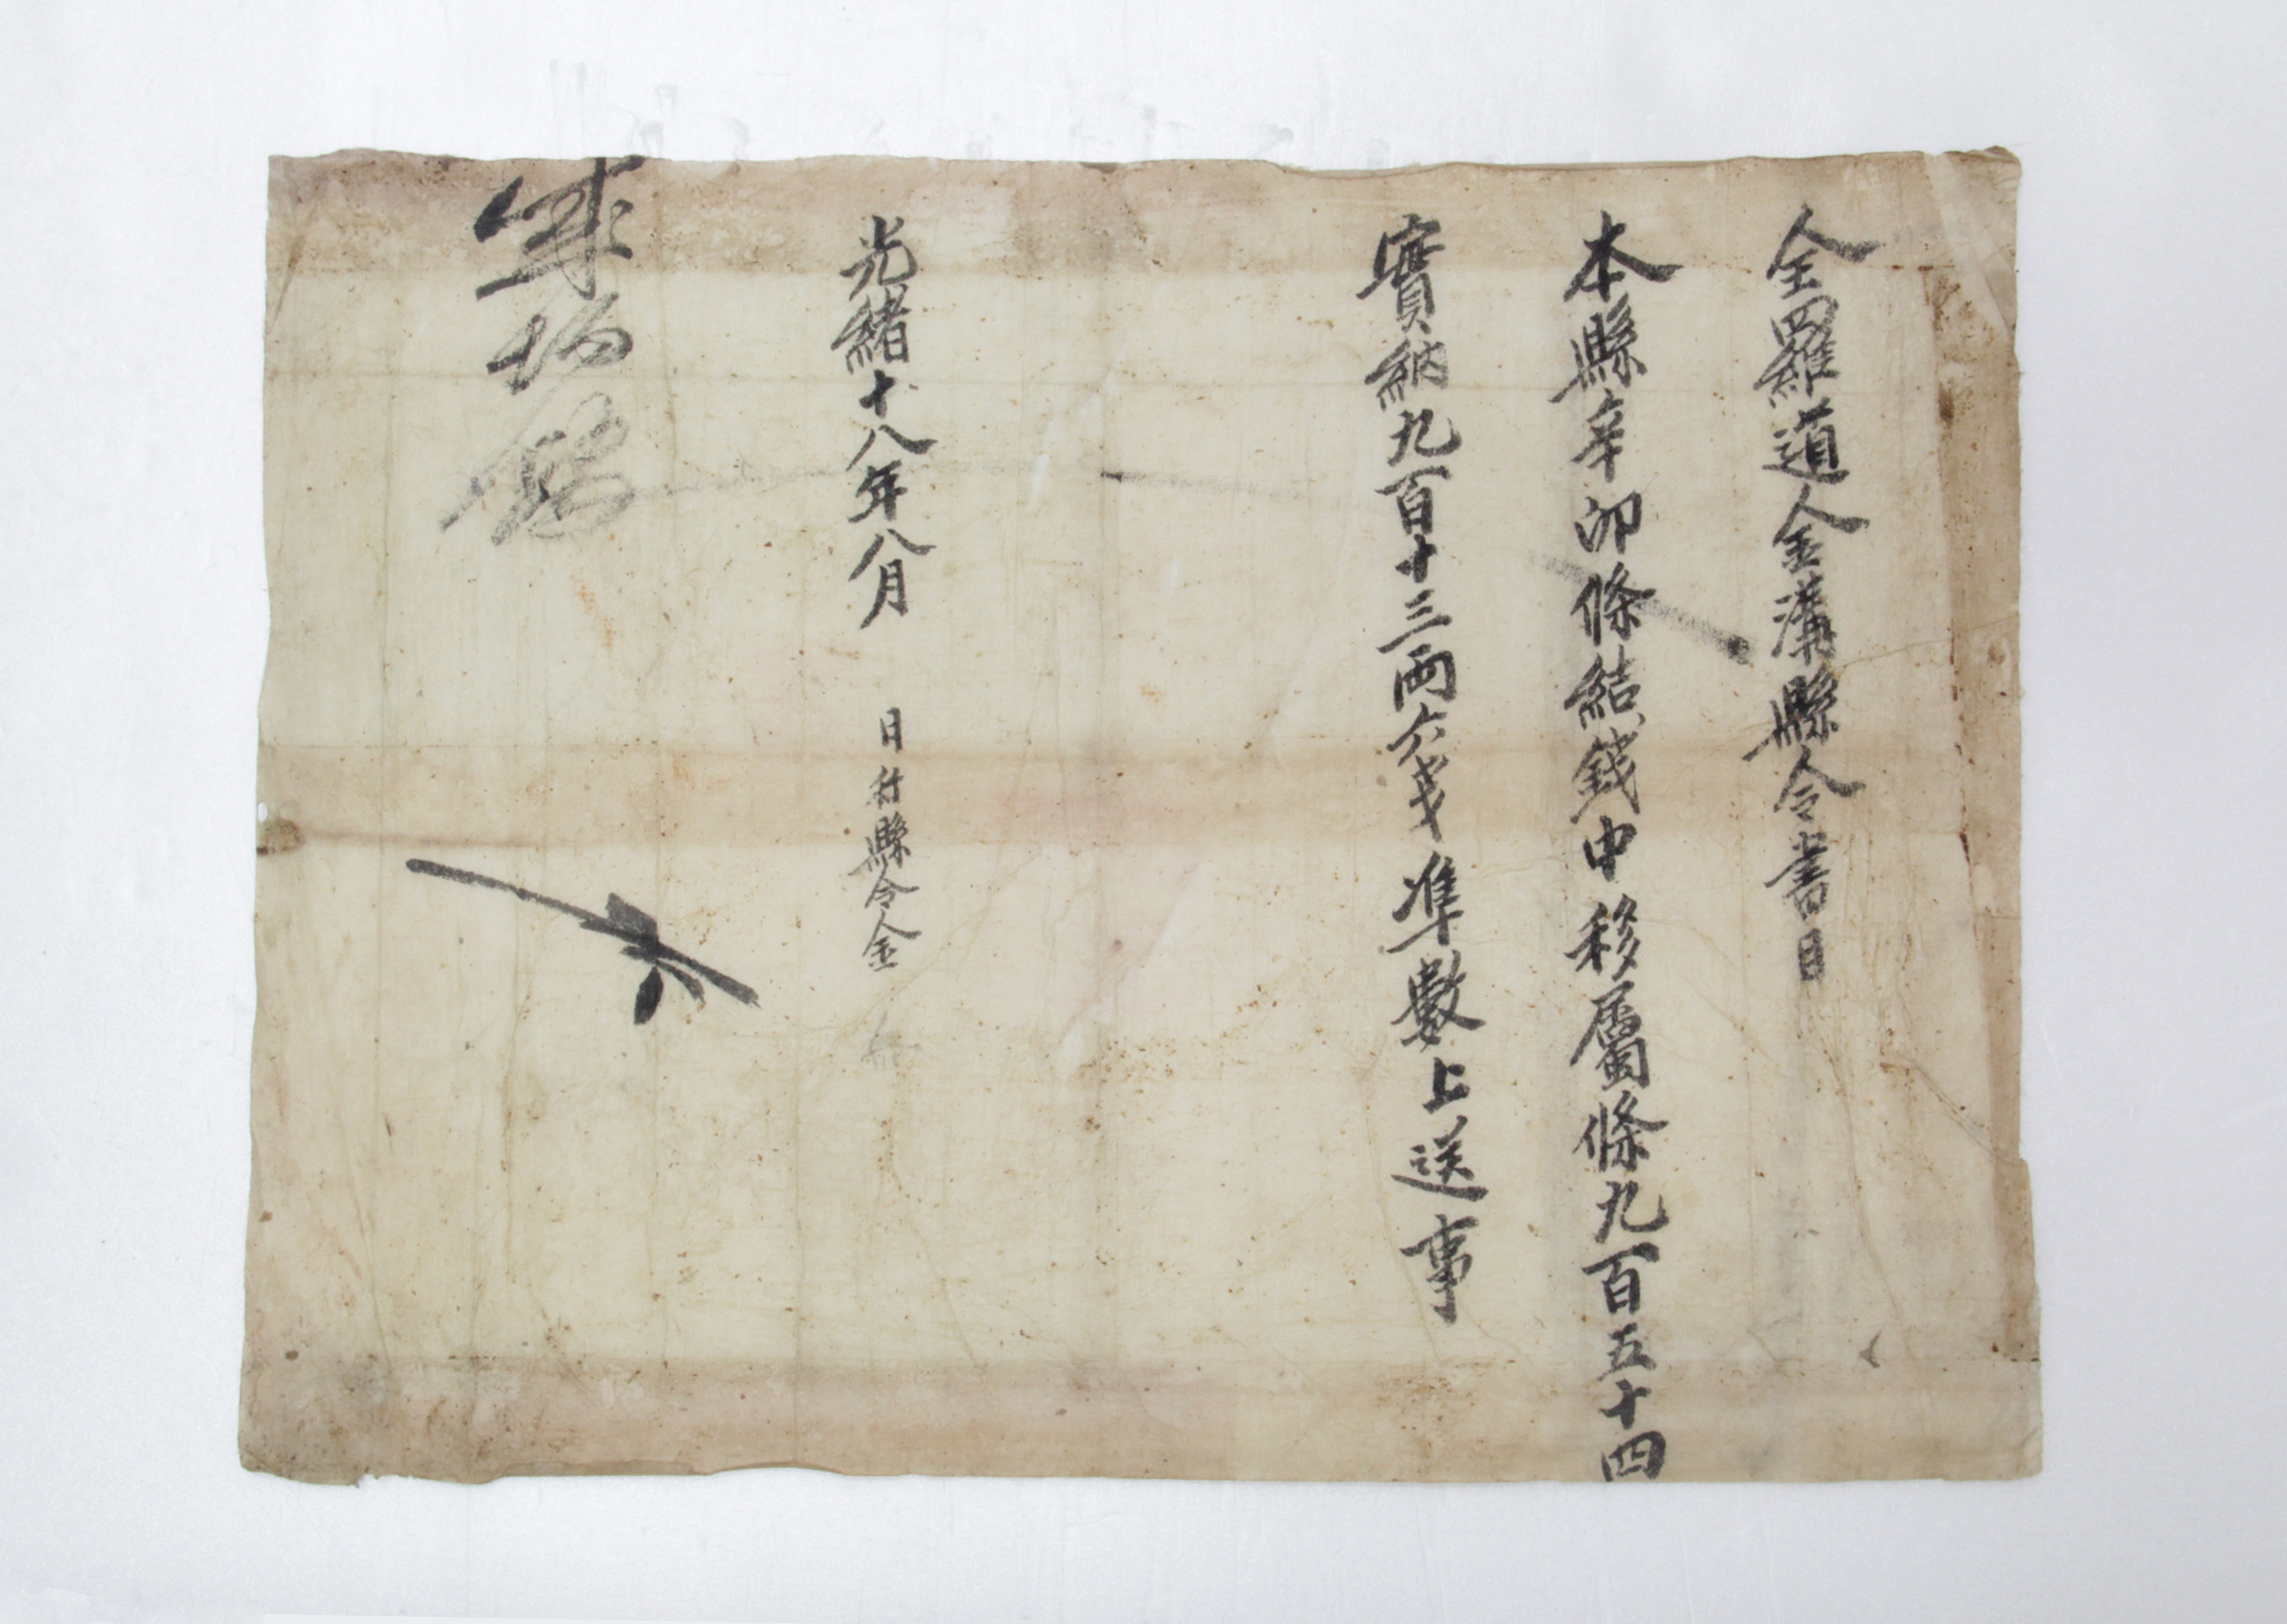 全羅道金溝縣令書目
本縣辛卯條結錢中移屬條九百五十四
實納九百十三兩六戔準數上送事
光緒十八年八月 日行縣令金